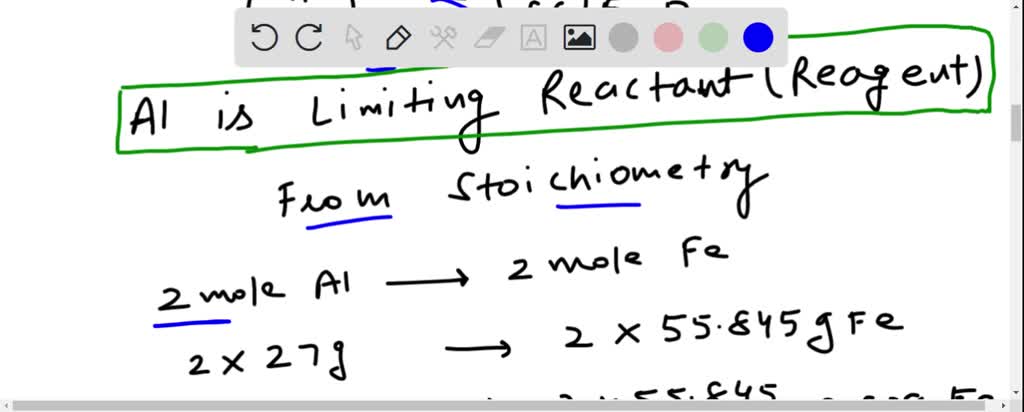 Al is Limiting Reactant (Reagent)
From Stoichiometry
2 mole Al → 2 mole Fe
2 × 27g → 2 × 55.845g Fe
55.845